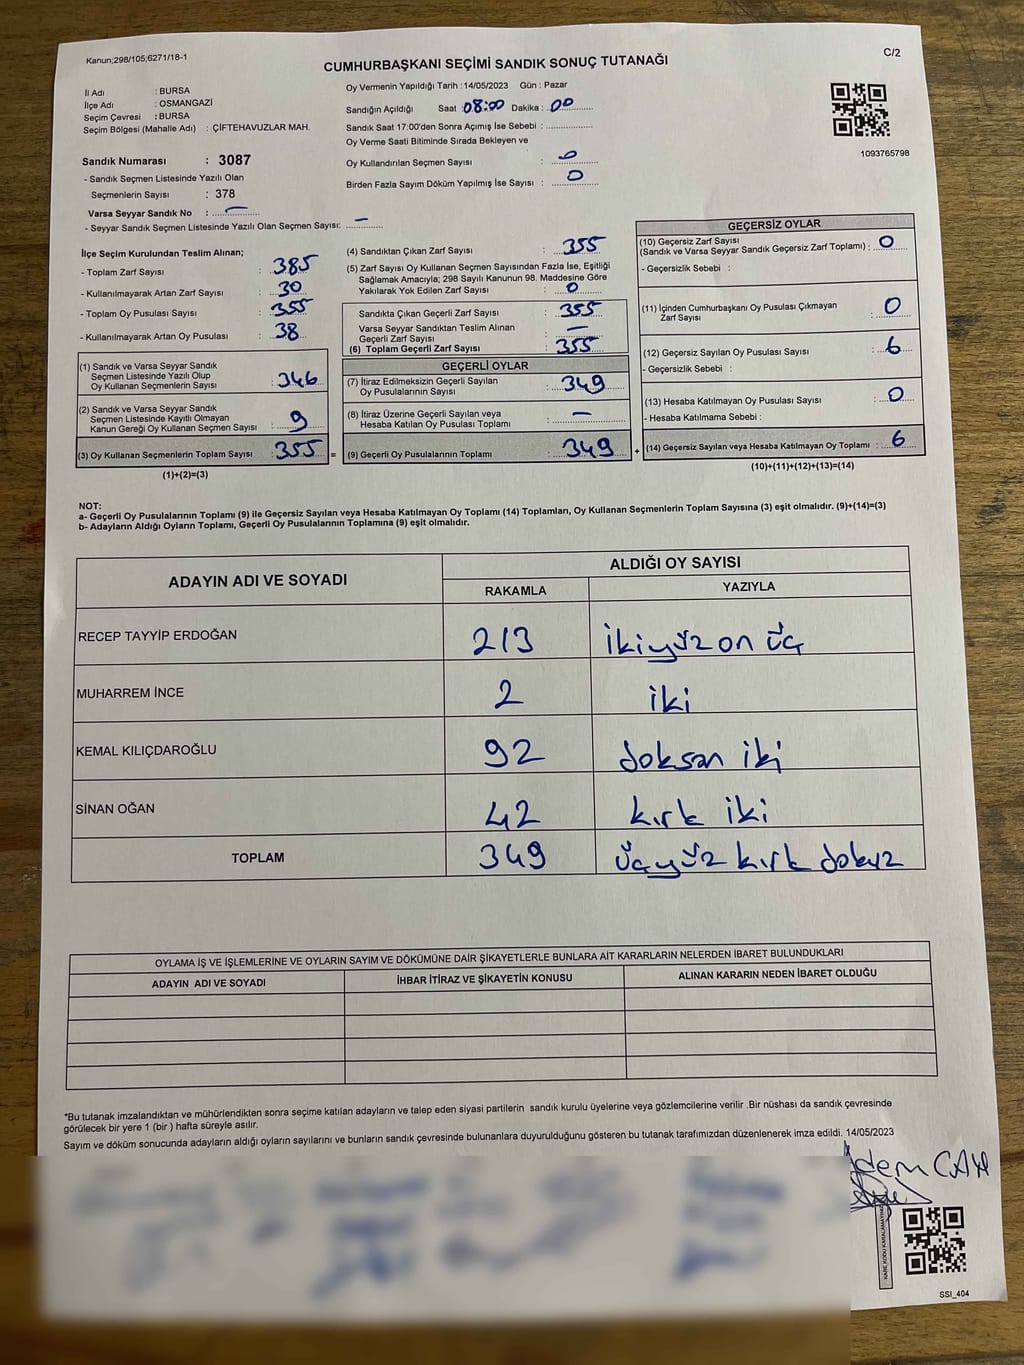 Kanun;298/105;6271/18-1
C/2
CUMHURBAŞKANI SEÇİMİ SANDIK SONUÇ TUTANAĞI
İl Adı : BURSA
İlçe Adı : OSMANGAZİ
Seçim Çevresi : BURSA
Seçim Bölgesi (Mahalle Adı) : ÇİFTEHAVUZLAR MAH.
Sandık Numarası : 3087
- Sandık Seçmen Listesinde Yazılı Olan
Seçmenlerin Sayısı : 378
Varsa Seyyar Sandık No : —
- Seyyar Sandık Seçmen Listesinde Yazılı Olan Seçmen Sayısı: —
Oy Vermenin Yapıldığı Tarih : 14/05/2023 Gün : Pazar
Sandığın Açıldığı Saat 08:00 Dakika : 00
Sandık Saat 17:00'den Sonra Açımış İse Sebebi :
Oy Verme Saati Bitiminde Sırada Bekleyen ve
Oy Kullandırılan Seçmen Sayısı : 0
Birden Fazla Sayım Döküm Yapılmış İse Sayısı : 0
1093765798
İlçe Seçim Kurulundan Teslim Alınan;
- Toplam Zarf Sayısı : 385
- Kullanılmayarak Artan Zarf Sayısı : 30
- Toplam Oy Pusulası Sayısı : 355
- Kullanılmayarak Artan Oy Pusulası : 38
(1) Sandık ve Varsa Seyyar Sandık
Seçmen Listesinde Yazılı Olup
Oy Kullanan Seçmenlerin Sayısı : 346
(2) Sandık ve Varsa Seyyar Sandık
Seçmen Listesinde Kayıtlı Olmayan
Kanun Gereği Oy Kullanan Seçmen Sayısı : 9
(3) Oy Kullanan Seçmenlerin Toplam Sayısı : 355 =
(1)+(2)=(3)
(4) Sandıktan Çıkan Zarf Sayısı : 355
(5) Zarf Sayısı Oy Kullanan Seçmen Sayısından Fazla İse, Eşitliği
Sağlamak Amacıyla; 298 Sayılı Kanunun 98. Maddesine Göre
Yakılarak Yok Edilen Zarf Sayısı : 0
Sandıkta Çıkan Geçerli Zarf Sayısı : 355
Varsa Seyyar Sandıktan Teslim Alınan
Geçerli Zarf Sayısı : —
(6) Toplam Geçerli Zarf Sayısı : 355
GEÇERLİ OYLAR
(7) İtiraz Edilmeksizin Geçerli Sayılan
Oy Pusulalarının Sayısı : 349
(8) İtiraz Üzerine Geçerli Sayılan veya
Hesaba Katılan Oy Pusulası Toplamı : —
(9) Geçerli Oy Pusulalarının Toplamı : 349 +
GEÇERSİZ OYLAR
(10) Geçersiz Zarf Sayısı
(Sandık ve Varsa Seyyar Sandık Geçersiz Zarf Toplamı) : 0
- Geçersizlik Sebebi :
(11) İçinden Cumhurbaşkanı Oy Pusulası Çıkmayan
Zarf Sayısı : 0
(12) Geçersiz Sayılan Oy Pusulası Sayısı : 6
- Geçersizlik Sebebi :
(13) Hesaba Katılmayan Oy Pusulası Sayısı : 0
- Hesaba Katılmama Sebebi :
(14) Geçersiz Sayılan veya Hesaba Katılmayan Oy Toplamı : 6
(10)+(11)+(12)+(13)=(14)
NOT:
a- Geçerli Oy Pusulalarının Toplamı (9) ile Geçersiz Sayılan veya Hesaba Katılmayan Oy Toplamı (14) Toplamları, Oy Kullanan Seçmenlerin Toplam Sayısına (3) eşit olmalıdır. (9)+(14)=(3)
b- Adayların Aldığı Oyların Toplamı, Geçerli Oy Pusulalarının Toplamına (9) eşit olmalıdır.
ADAYIN ADI VE SOYADI
ALDIĞI OY SAYISI
RAKAMLA YAZIYLA
RECEP TAYYİP ERDOĞAN 213 ikiyüz on üç
MUHARREM İNCE 2 iki
KEMAL KILIÇDAROĞLU 92 doksan iki
SİNAN OĞAN 42 kırk iki
TOPLAM 349 üçyüz kırk dokuz
OYLAMA İŞ VE İŞLEMLERİNE VE OYLARIN SAYIM VE DÖKÜMÜNE DAİR ŞİKAYETLERLE BUNLARA AİT KARARLARIN NELERDEN İBARET BULUNDUKLARI
ADAYIN ADI VE SOYADI İHBAR İTİRAZ VE ŞİKAYETİN KONUSU ALINAN KARARIN NEDEN İBARET OLDUĞU
*Bu tutanak imzalandıktan ve mühürlendikten sonra seçime katılan adayların ve talep eden siyasi partilerin sandık kurulu üyelerine veya gözlemcilerine verilir .Bir nüshası da sandık çevresinde
görülecek bir yere 1 (bir ) hafta süreyle asılır.
Sayım ve döküm sonucunda adayların aldığı oyların sayılarını ve bunların sandık çevresinde bulunanlara duyurulduğunu gösteren bu tutanak tarafımızdan düzenlenerek imza edildi. 14/05/2023
KARE KODU KARALAMAYINIZ
SSI_404